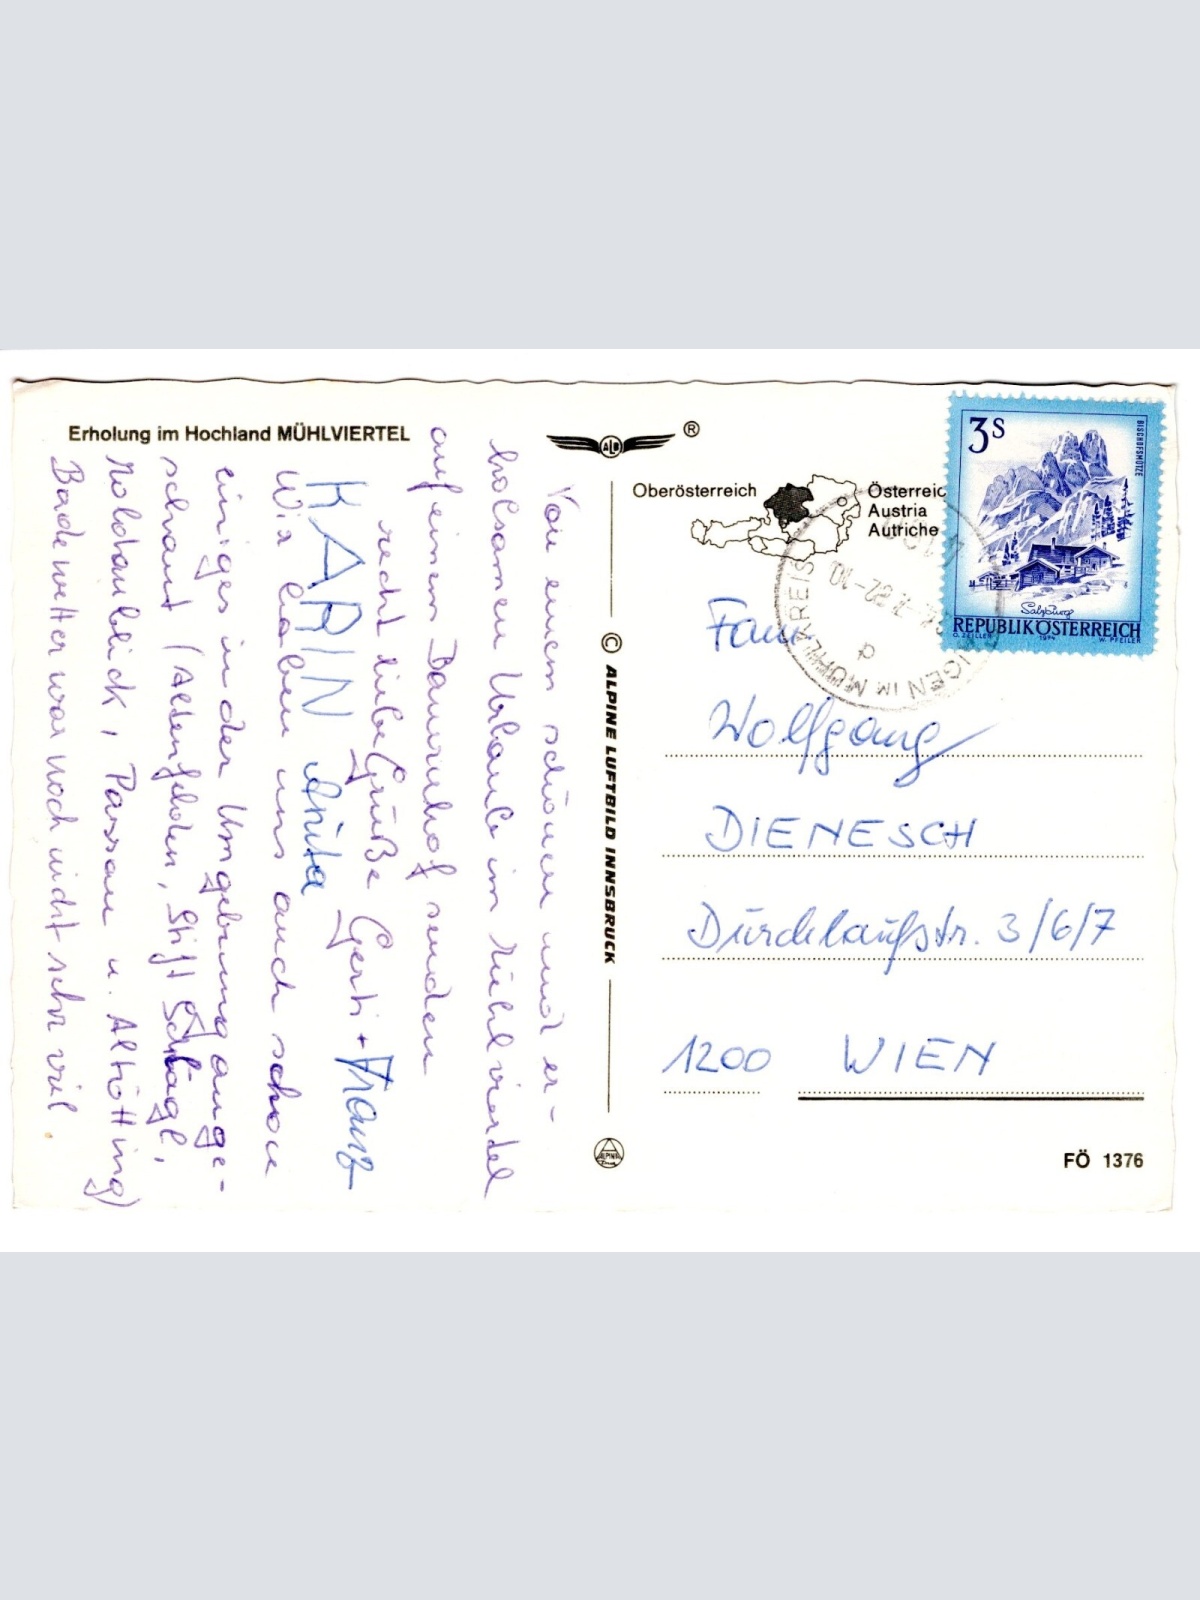 Erholung im Hochland MÜHLVIERTEL
Von einem schönen und er-
holsamen Urlaub im Mühlviertel
auf einem Bauernhof senden
recht liebe Grüße Gerti + Franz
KARIN Anita
Wir haben uns auch schon
einiges in der Umgebung ange-
schaut (Altenfelden, Stift Schlägl,
Moldaublick, Passau u. Altötting)
Badewetter war noch nicht sehr viel.
ALB
®
© ALPINE LUFTBILD INNSBRUCK
ALPINE
Oberösterreich
Österreic
Austria
Autriche
3S
BISCHOFSMÜTZE
Salzburg
REPUBLIK ÖSTERREICH
O. ZEILLER 1974 W. PFEILER
IGEN IM MÜHLKREIS
Fam
Wolfgang
DIENESCH
Durchlaufstr. 3/6/7
1200 WIEN
FÖ 1376